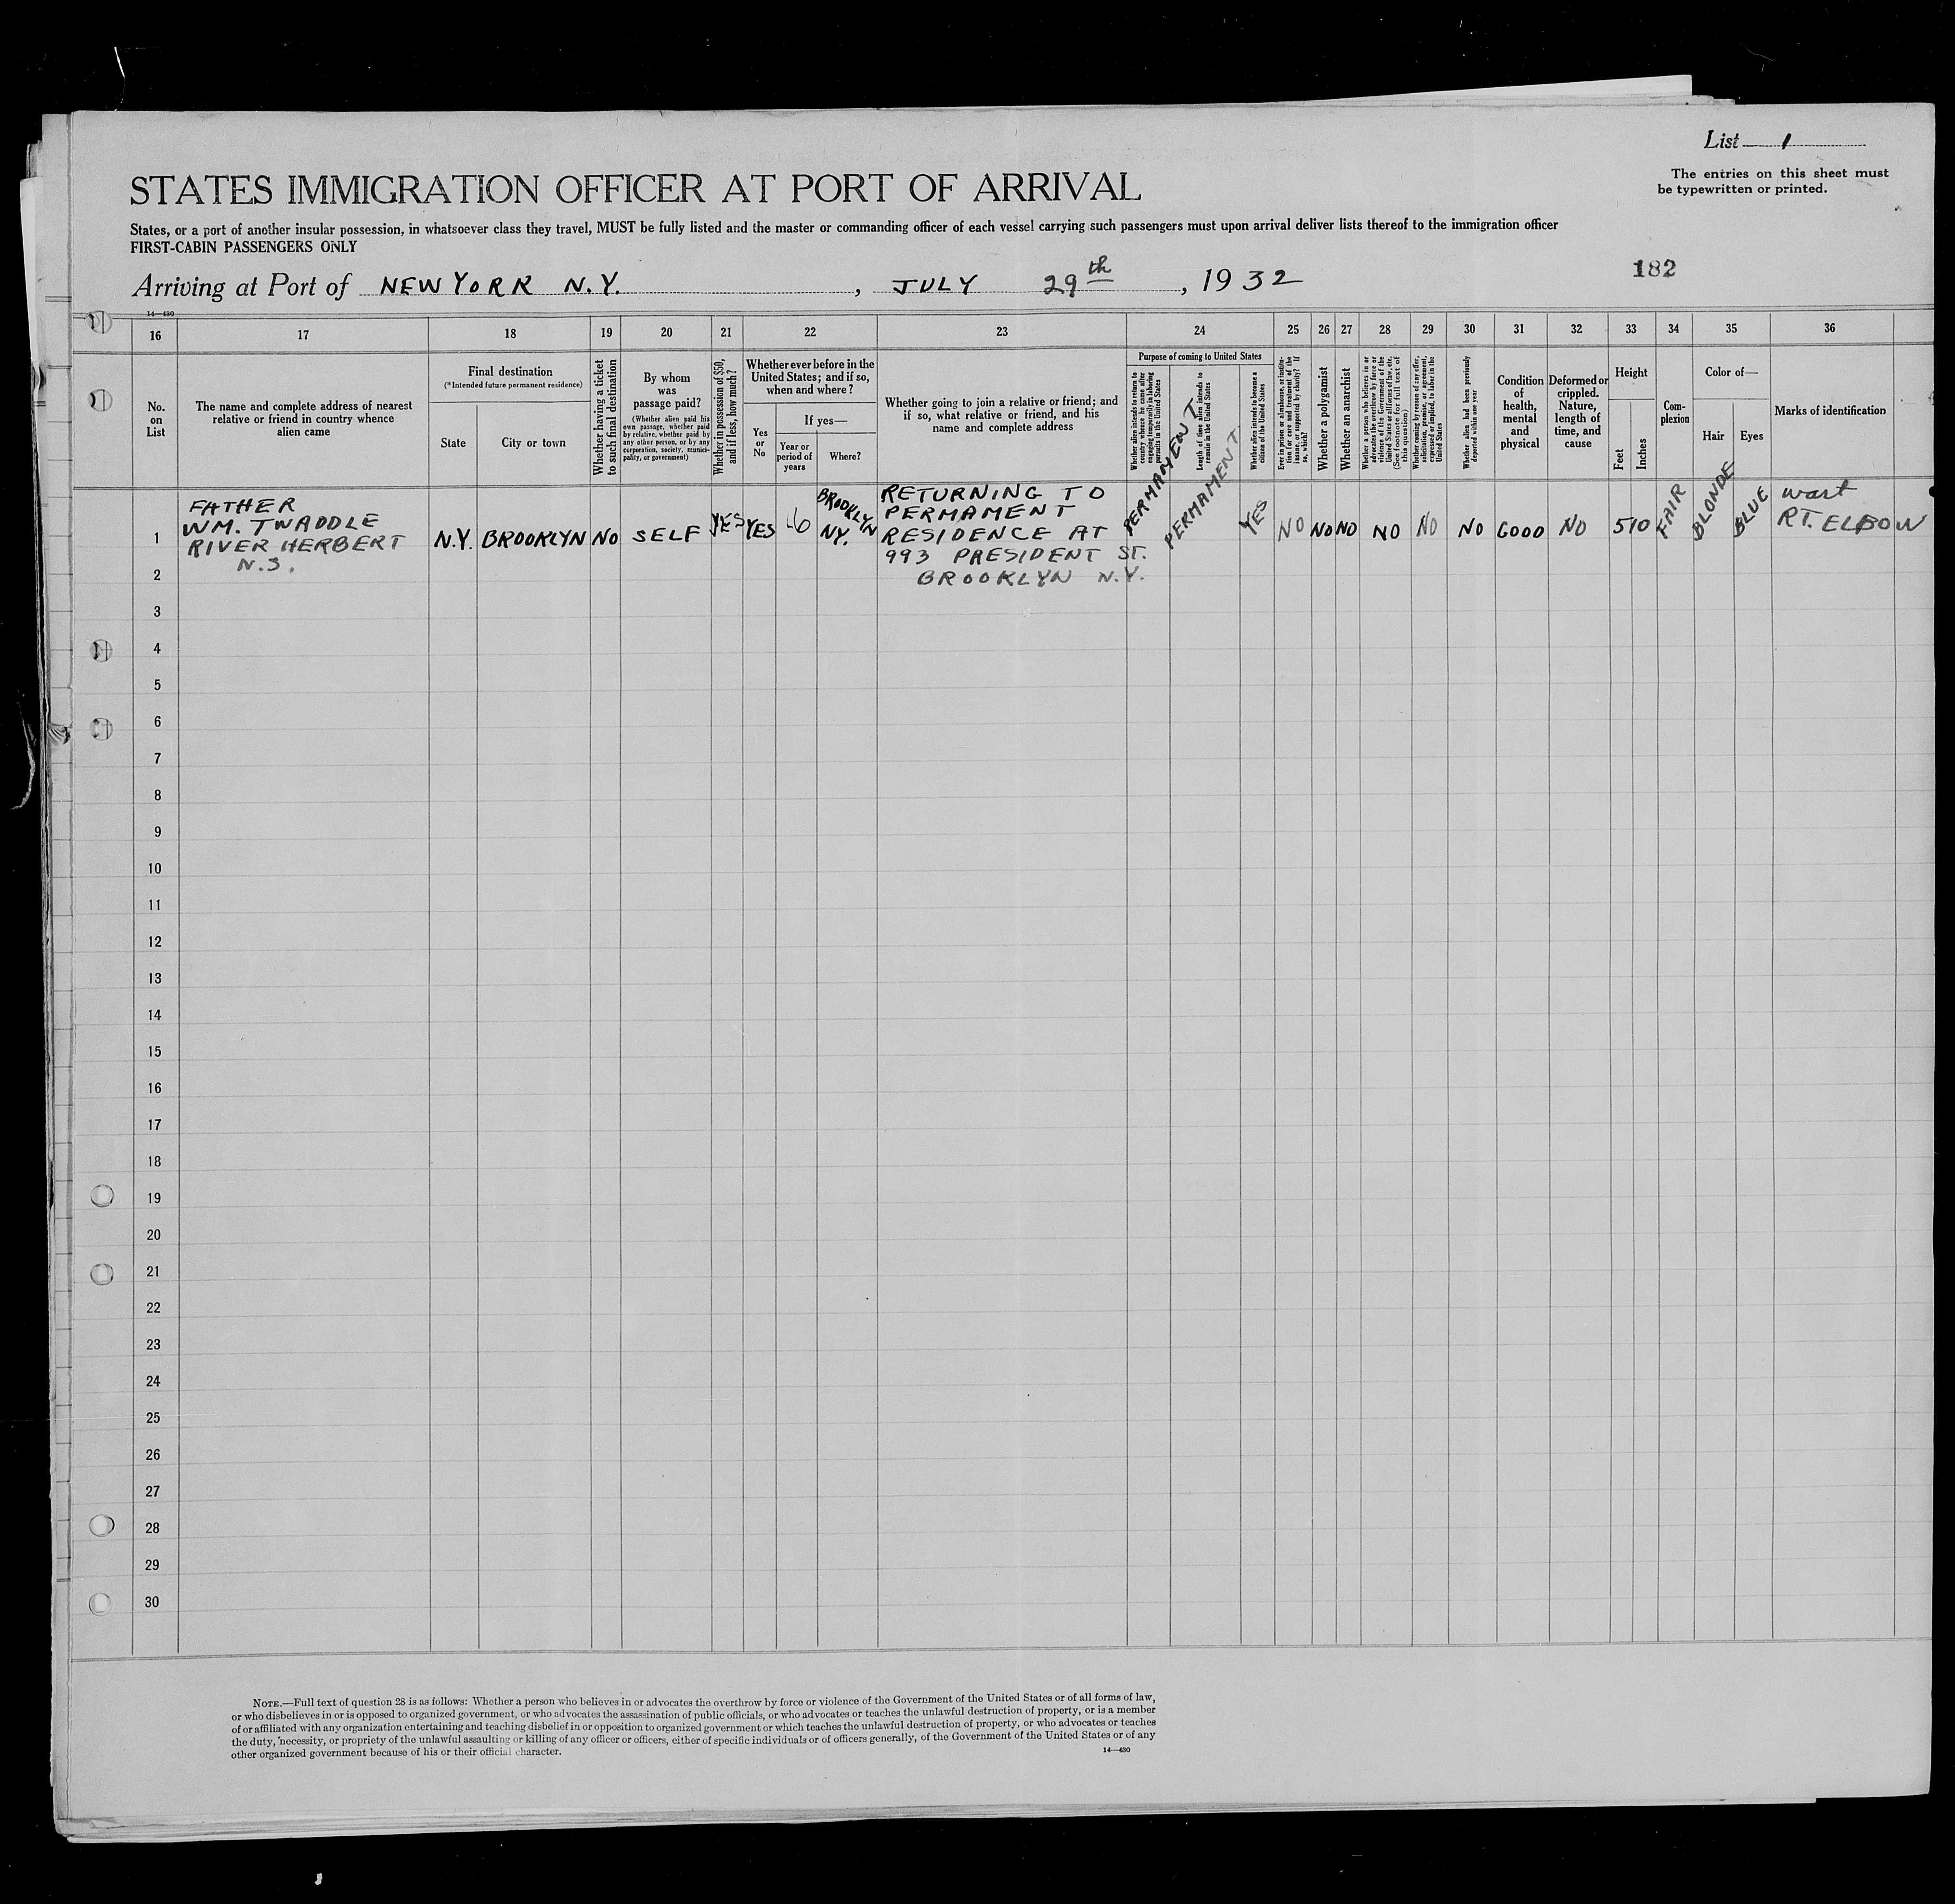 List 1
The entries on this sheet must
be typewritten or printed.
STATES IMMIGRATION OFFICER AT PORT OF ARRIVAL
States, or a port of another insular possession, in whatsoever class they travel, MUST be fully listed and the master or commanding officer of each vessel carrying such passengers must upon arrival deliver lists thereof to the immigration officer
FIRST-CABIN PASSENGERS ONLY
182
Arriving at Port of NEW YORK N.Y. , JULY 29th , 1932
14—430
16 17 18 19 20 21 22 23 24 25 26 27 28 29 30 31 32 33 34 35 36
No.
on
List
The name and complete address of nearest
relative or friend in country whence
alien came
Final destination
(*Intended future permanent residence)
State
City or town
Whether having a ticket
to such final destination
By whom
was
passage paid?
(Whether alien paid his
own passage, whether paid
by relative, whether paid by
any other person, or by any
corporation, society, munici-
pality, or government)
Whether in possession of $50,
and if less, how much?
Whether ever before in the
United States; and if so,
when and where?
Yes
or
No
If yes—
Year or
period of
years
Where?
Whether going to join a relative or friend; and
if so, what relative or friend, and his
name and complete address
Purpose of coming to United States
Whether alien intends to return to
country whence he came after
engaging temporarily in laboring
pursuits in the United States
Length of time alien intends to
remain in the United States
Whether alien intends to become a
citizen of the United States
Ever in prison or almshouse, or institu-
tion for care and treatment of the
insane, or supported by charity? If
so, which?
Whether a polygamist
Whether an anarchist
Whether a person who believes in or
advocates the overthrow by force or
violence of the Government of the
United States or all forms of law, etc.
(See footnote for full text of
this question)
Whether coming by reason of any offer,
solicitation, promise, or agreement,
expressed or implied, to labor in the
United States
Whether alien had been previously
deported within one year
Condition
of
health,
mental
and
physical
Deformed or
crippled.
Nature,
length of
time, and
cause
Height
Feet
Inches
Com-
plexion
Color of—
Hair
Eyes
Marks of identification
1
FATHER
WM. TWADDLE
RIVER HERBERT
N.S.
N.Y. BROOKLYN NO SELF YES YES 6
BROOKLYN
NY.
RETURNING TO
PERMAMENT
RESIDENCE AT
993 PRESIDENT ST.
BROOKLYN N.Y.
PERMAMENT
PERMAMENT
YES NO NO NO NO NO NO GOOD NO 5 10 FAIR BLONDE BLUE
wart
RT. ELBOW
2
3
4
5
6
7
8
9
10
11
12
13
14
15
16
17
18
19
20
21
22
23
24
25
26
27
28
29
30
NOTE.—Full text of question 28 is as follows: Whether a person who believes in or advocates the overthrow by force or violence of the Government of the United States or of all forms of law,
or who disbelieves in or is opposed to organized government, or who advocates the assassination of public officials, or who advocates or teaches the unlawful destruction of property, or is a member
of or affiliated with any organization entertaining and teaching disbelief in or opposition to organized government or which teaches the unlawful destruction of property, or who advocates or teaches
the duty, necessity, or propriety of the unlawful assaulting or killing of any officer or officers, either of specific individuals or of officers generally, of the Government of the United States or of any
other organized government because of his or their official character.
14—430